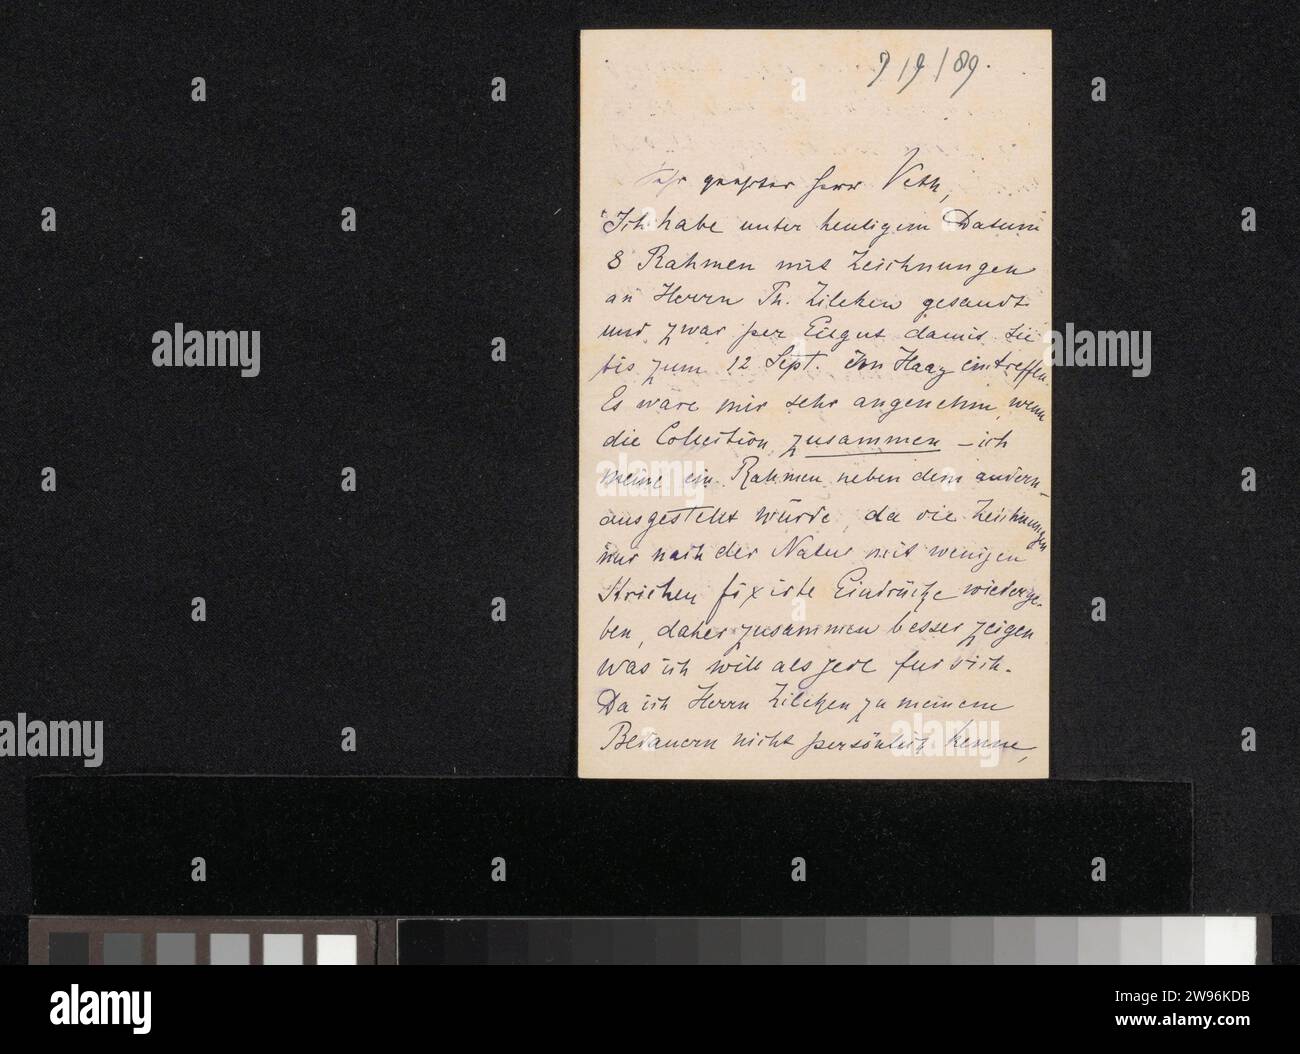 9/9/89.
Sehr geehrter Herr Veth,
Ich habe unter heutigem Datum
8 Rahmen mit Zeichnungen
an Herrn Th. Zilcken gesandt
und zwar per Eilgut damit sie
bis zum 12 Sept. im Haag eintreffen.
Es wäre mir sehr angenehm, wenn
die Collection zusammen – ich
meine ein Rahmen neben dem andern –
ausgestellt würde, da die Zeichnungen
nur nach der Natur mit wenigen
Strichen fixirte Eindrücke wiederge-
ben, daher zusammen besser zeigen
was ich will als jede fur sich.
Da ich Herrn Zilcken zu meinem
Bedauern nicht persönlich kenne,
alamy
www.alamy.com
Image ID: 2W96KDB